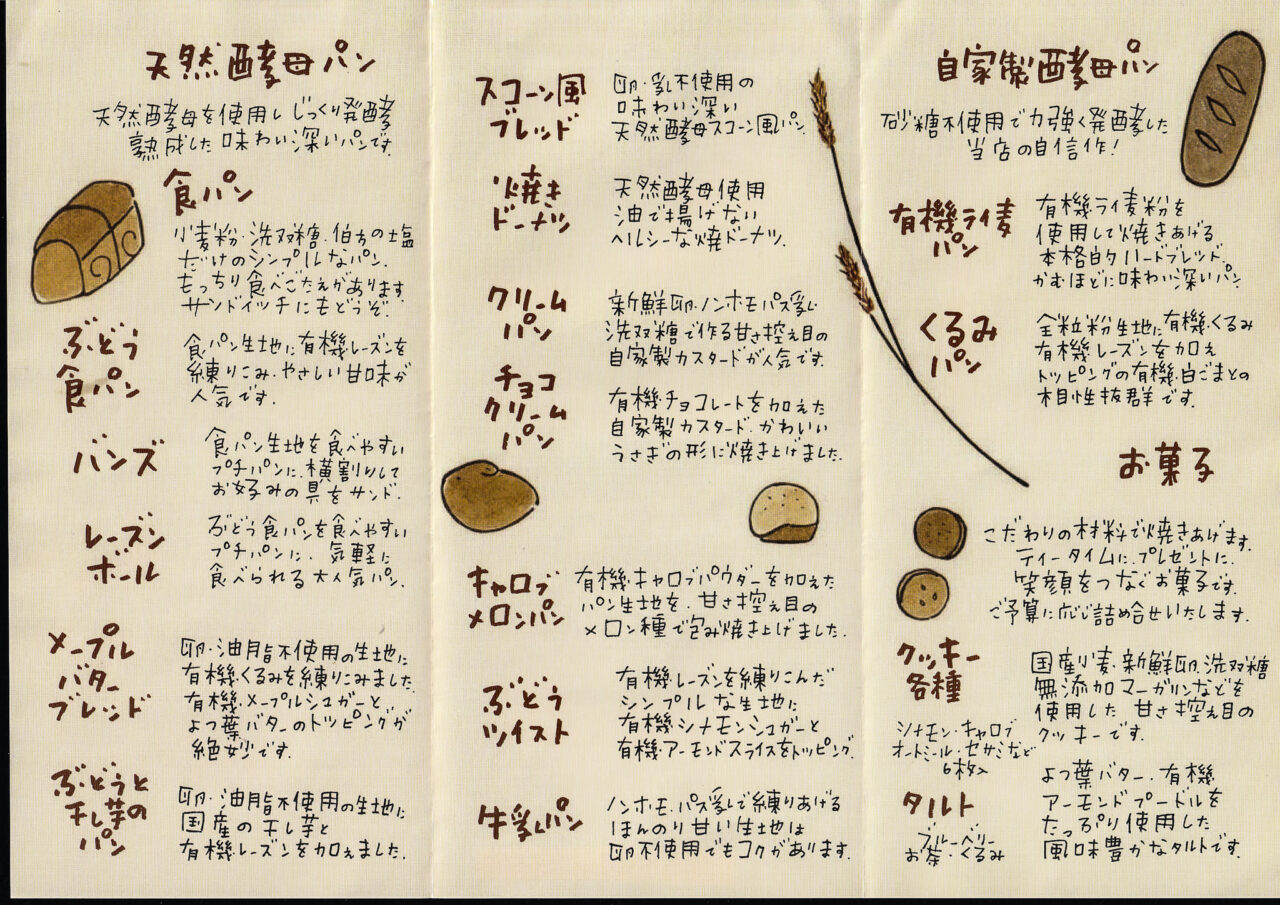 天然酵母パン
天然酵母を使用しじっくり発酵
熟成した味わい深いパンです。
食パン
小麦粉・洗双糖・伯方の塩
だけのシンプルなパン。
もっちり食べごたえがあります。
サンドイッチにもどうぞ。
ぶどう
食パン
食パン生地に有機レーズンを
練りこみ、やさしい甘味が
人気です。
バンズ
食パン生地を食べやすい
プチパンに、横割りして
お好みの具をサンド。
レーズン
ボール
ぶどう食パンを食べやすい
プチパンに、気軽に
食べられる大人気パン。
メープル
バター
ブレッド
卵・油脂不使用の生地に
有機くるみを練りこみました。
有機メープルシュガーと
よつ葉バターのトッピングが
絶妙です。
ぶどうと
干し芋の
パン
卵・油脂不使用の生地に
国産の干し芋と
有機レーズンを加えました。
スコーン風
ブレッド
卵・乳不使用の
味わい深い
天然酵母スコーン風パン。
焼き
ドーナツ
天然酵母使用
油で揚げない
ヘルシーな焼ドーナツ。
クリーム
パン
新鮮卵・ノンホモパス乳・
洗双糖で作る甘さ控え目の
自家製カスタードが人気です。
チョコ
クリーム
パン
有機チョコレートを加えた
自家製カスタード。かわいい
うさぎの形に焼き上げました。
キャロブ
メロンパン
有機キャロブパウダーを加えた
パン生地を、甘さ控え目の
メロン種で包み焼き上げました。
ぶどう
ツイスト
有機レーズンを練りこんだ
シンプルな生地に
有機シナモンシュガーと
有機アーモンドスライスをトッピング。
牛乳パン
ノンホモ・パス乳で練りあげる
ほんのり甘い生地は
卵不使用でもコクがあります。
自家製酵母パン
砂糖不使用で力強く発酵した
当店の自信作!
有機ライ麦
パン
有機ライ麦粉を
使用して焼きあげる
本格的ハードブレッド。
かむほどに味わい深いパン
くるみ
パン
全粒粉生地に有機くるみ
有機レーズンを加え
トッピングの有機白ごまとの
相性抜群です。
お菓子
こだわりの材料で焼きあげます。
ティータイムに、プレゼントに、
笑顔をつなぐお菓子です。
ご予算に応じ詰め合せいたします。
クッキー
各種
シナモン・キャロブ
オートミール・セサミなど
6枚入
国産小麦・新鮮卵・洗双糖
無添加マーガリンなどを
使用した甘さ控え目の
クッキーです。
タルト
ブルーベリー
お茶・くるみ
よつ葉バター、有機
アーモンドプードルを
たっぷり使用した
風味豊かなタルトです。